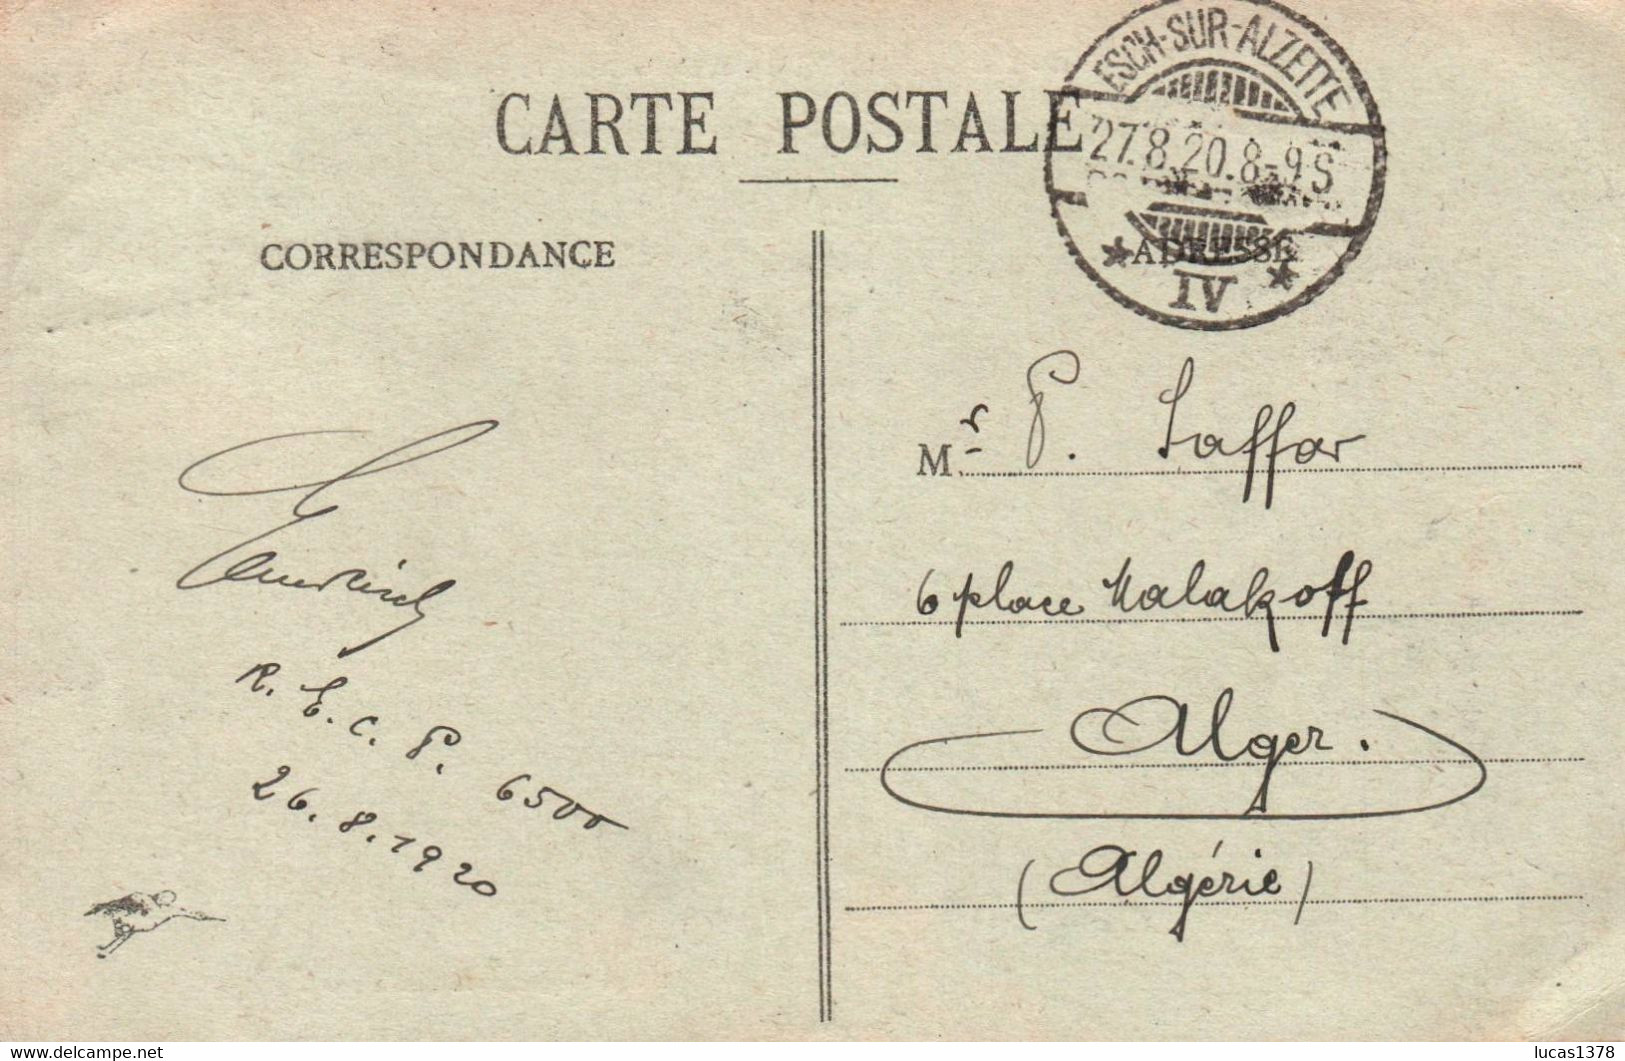 CARTE POSTALE
ESCH-SUR-ALZETTE
27.8.20.8-9S
IV
CORRESPONDANCE
ADRESSE
Mr P. Saffar
6 place Malakoff
Alger.
(Algérie)
R. E. C. P. 6500
26.8.1920
delcampe.net
lucas1378